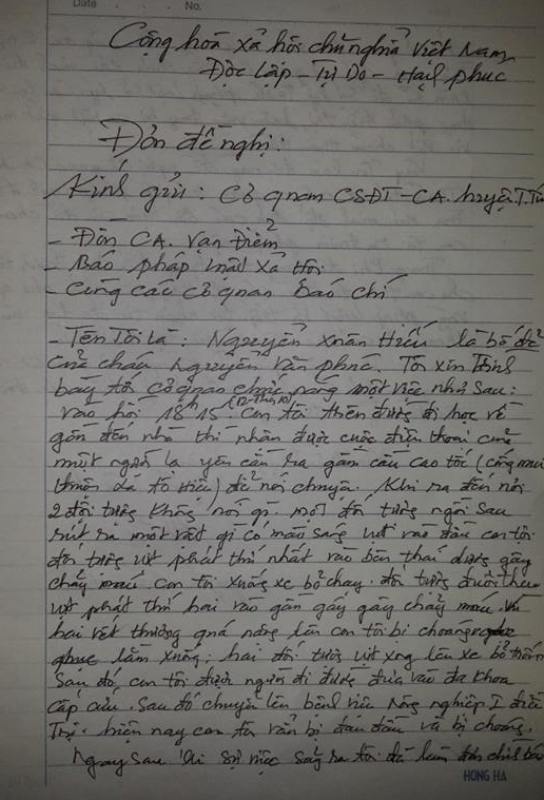 Date No.
Cộng hoà xã hội chủ nghĩa Việt Nam
Độc Lập - Tự Do - Hạnh phúc
Đơn đề nghị:
Kính gửi: Cơ quan CSĐT-CA. huyện T. Tín
- Đồn CA. Vạn Điểm
- Báo pháp luật xã hội
- Cùng các cơ quan báo chí
- Tên tôi là: Nguyễn Xuân Hiếu là bố đẻ
của cháu Nguyễn Văn Phúc. Tôi xin trình
bày tới cơ quan chức năng một việc như sau:
vào hồi 18h15 con tôi trên đường đi học về
gần đến nhà thì nhận được cuộc điện thoại của
một người lạ yêu cầu ra gầm cầu cao tốc (cống
thôn Đỗ ) để nói chuyện. Khi ra đến nơi
2 đối tượng không nói gì. một đối tượng ngồi sau
rút ra một vật gì có màu sáng vụt vào đầu con tôi
đối tượng vụt phát thứ nhất vào bên thái dương gây
chảy máu con tôi xuống xe bỏ chạy. đối tượng đuổi theo
vụt phát thứ hai vào gần gáy gây chảy máu. Vì
hai vết thương quá nặng lên con tôi bị choáng
gục nằm xuống; hai đối tượng vụt xong lên xe bỏ trốn
Sau đó, con tôi được người đi đường đưa vào đa khoa
cấp cứu. Sau đó chuyển lên bệnh viện Nông nghiệp I điều
Trị. hiện nay con tôi vẫn bị đau đầu và bị choáng.
Ngay sau khi sự việc xảy ra tôi đã làm đơn
HONG HA